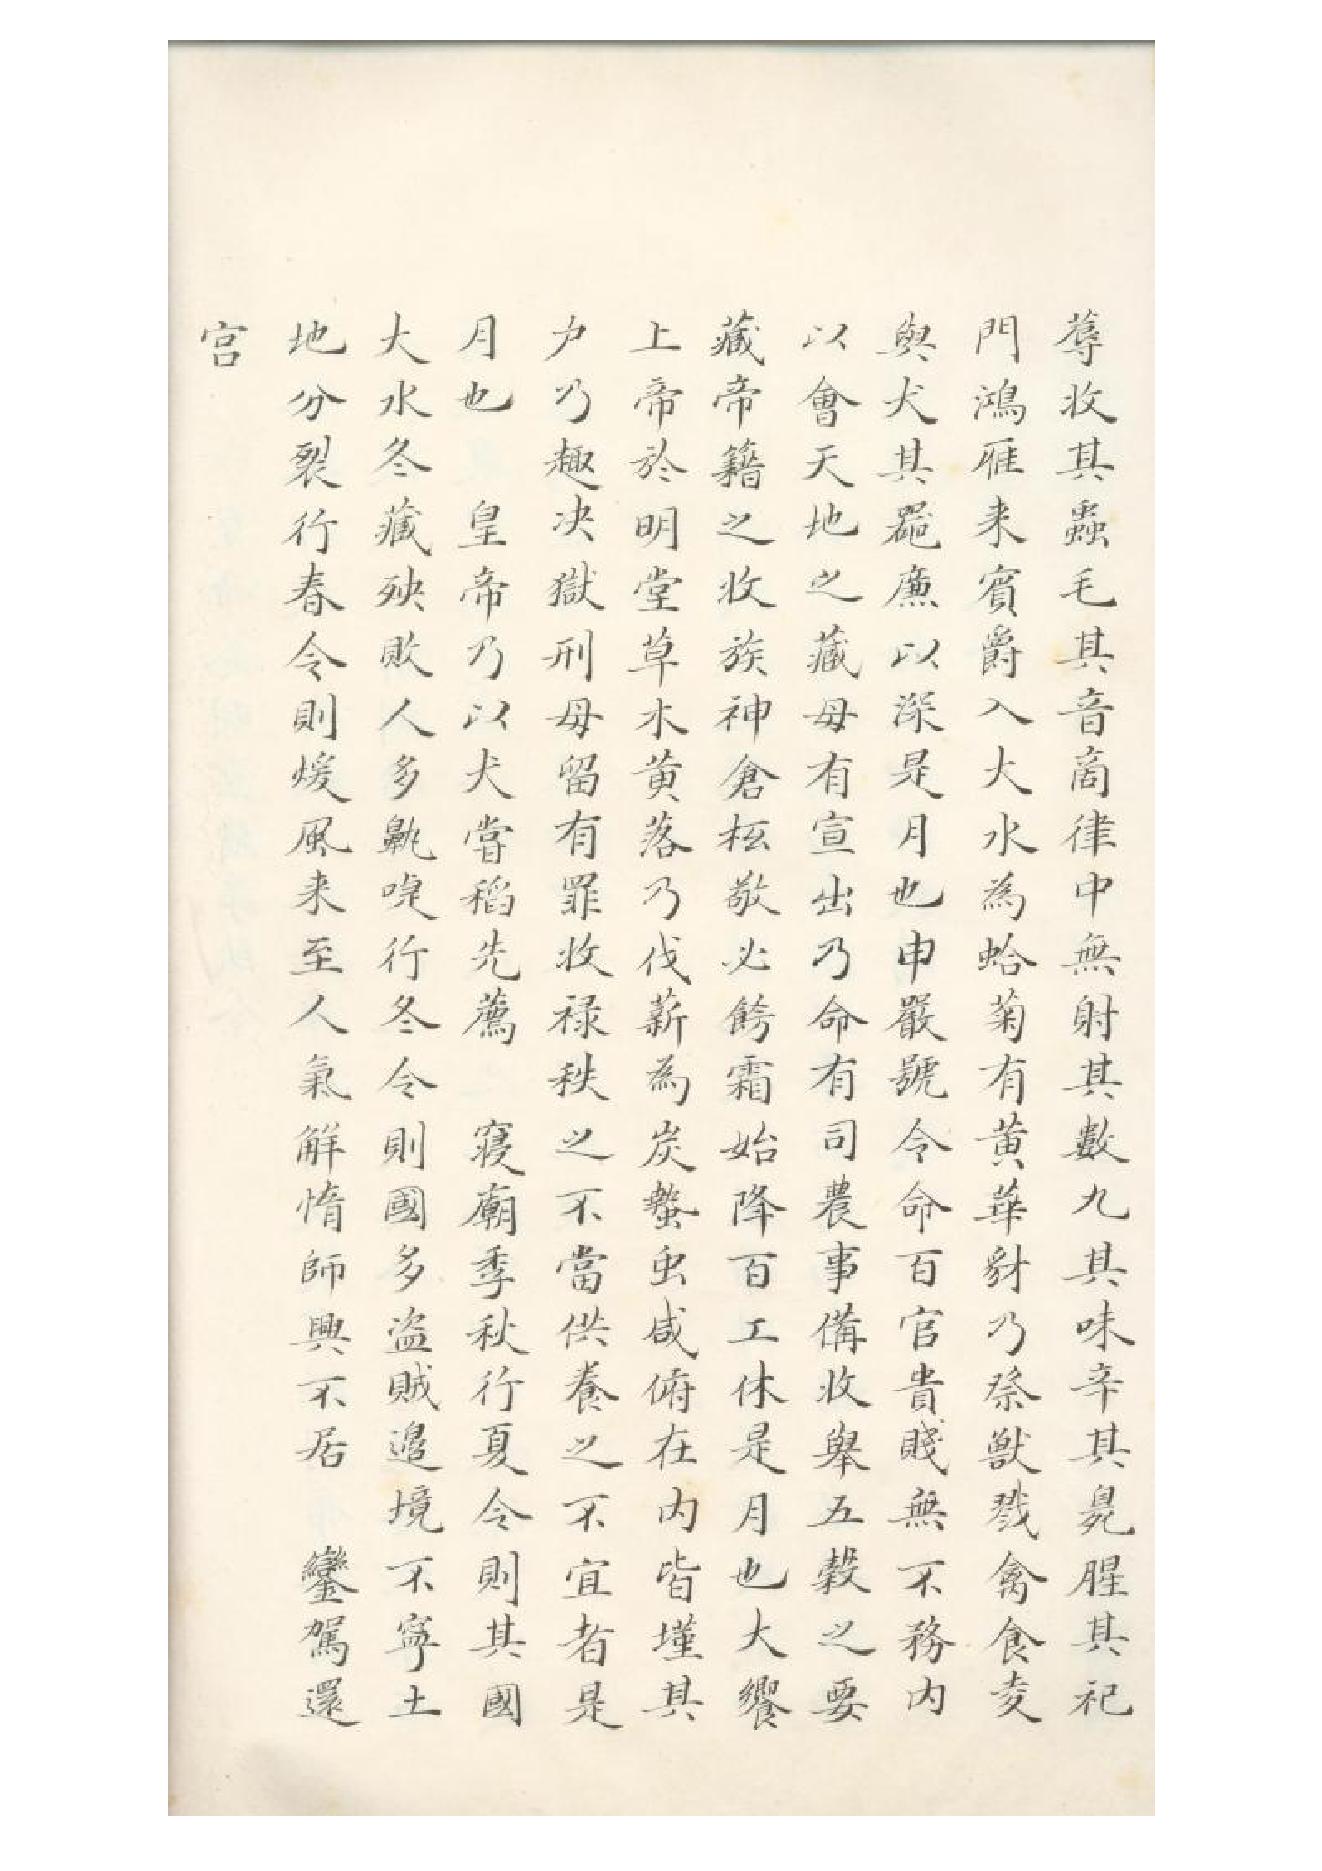 蓐收其蟲毛其音商律中無射其數九其味辛其臭腥其祀
門鴻雁来賓爵入大水為蛤菊有黄華豺乃祭獸戮禽食麥
與犬其噐廉以深是月也申嚴號令命百官貴賤無不務内
以會天地之藏毋有宣出乃命有司農事備收舉五穀之要
藏帝籍之收族神倉柾敬必餝霜始降百工休是月也大饗
上帝於明堂草木黄落乃伐薪為炭蟄虫咸俯在内皆墐其
户乃趣决獄刑毋留有罪收禄秩之不當供養之不宜者是
月也　皇帝乃以犬嘗稻先薦　寢廟季秋行夏令則其國
大水冬藏殃敗人多鼽嚏行冬令則國多盗賊邉境不寧土
地分裂行春令則煖風来至人氣解惰師興不居　鑾駕還
宫